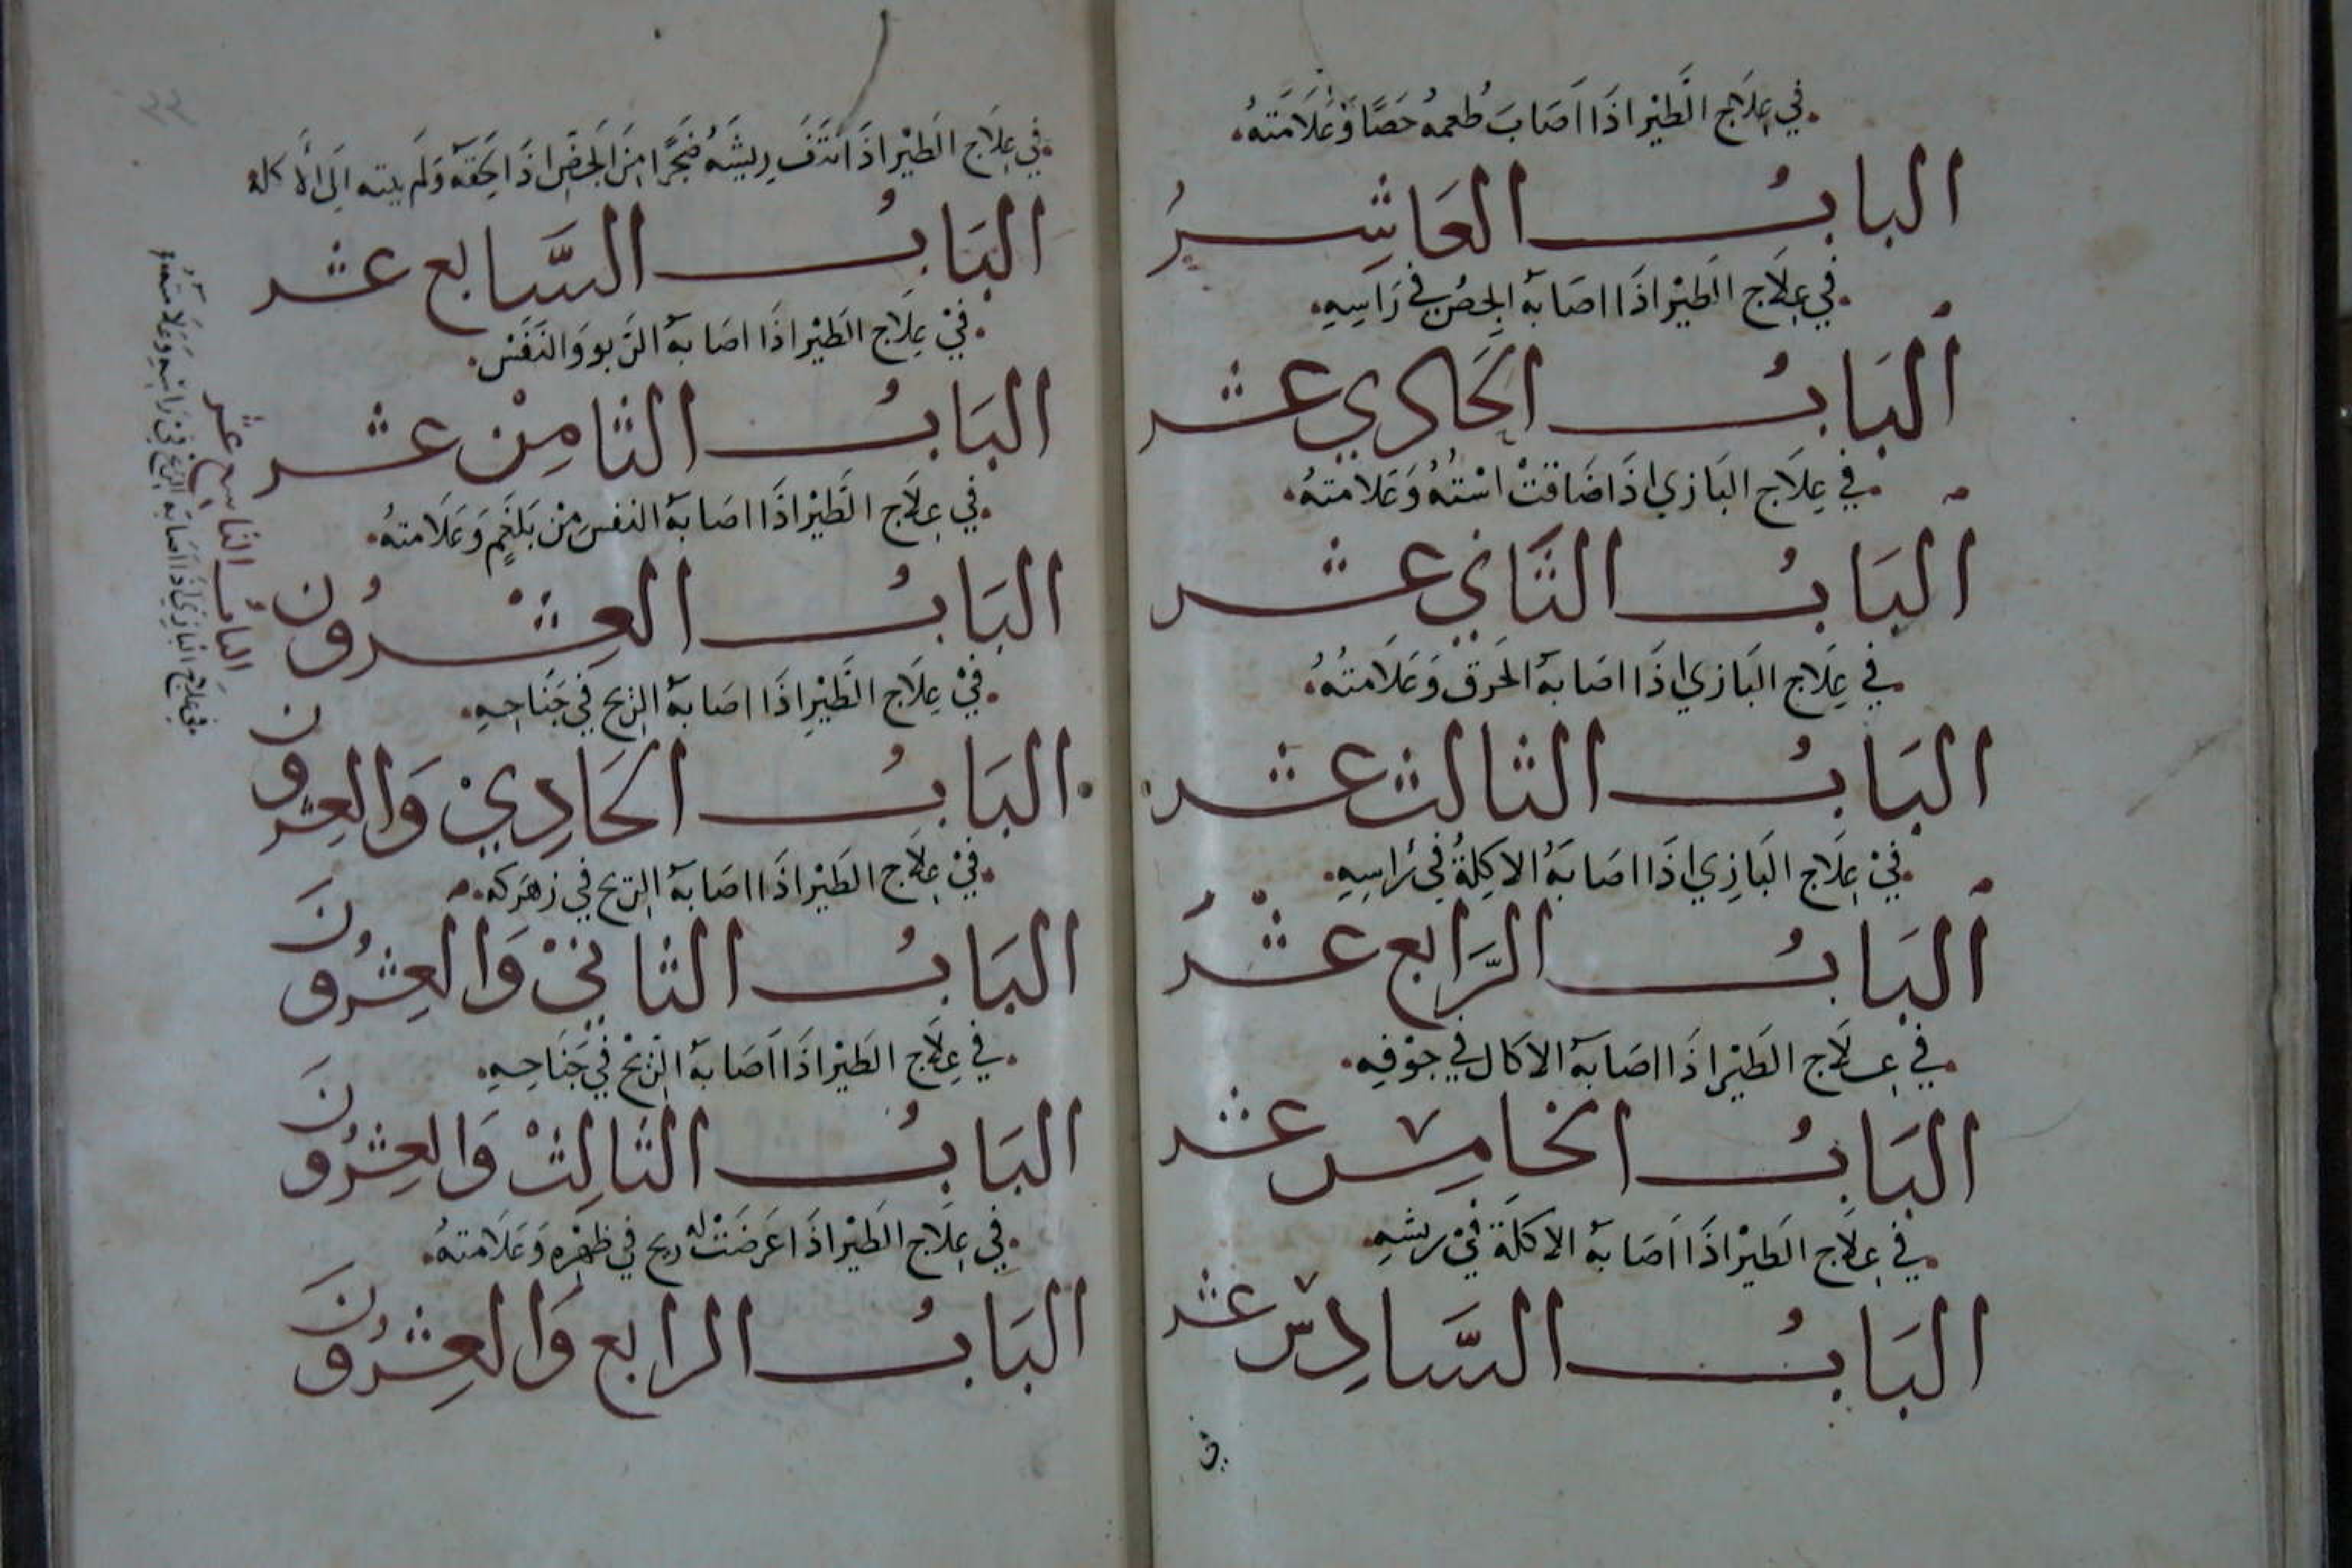 في علاج الطير اذا اصاب طعمه حصا وعلامته
الباب العاشر
في علاج الطير اذا اصابه الحص في راسه
الباب الحادي عشر
في علاج البازي اذا ضاقت استه وعلامته
الباب الثاني عشر
في علاج البازي اذا اصابه الحرق وعلامته
الباب الثالث عشر
في علاج البازي اذا اصابه الاكلة في راسه
الباب الرابع عشر
في علاج الطير اذا اصابه الاكال في جوفه
الباب الخامس عشر
في علاج الطير اذا اصابه الاكلة في ريشه
الباب السادس عشر
في
في علاج الطير اذا نتف ريشه ضجرا من الحص اذا لحقه ولم ينته الى الاكله
الباب السابع عشر
في علاج الطير اذا اصابه الربو والنفس
الباب الثامن عشر
في علاج الطير اذا اصابه النفس من بلغم وعلامته
الباب التاسع عشر
في علاج البازي اذا اصابه الريح في راسه وعلامته
الباب العشرون
في علاج الطير اذا اصابه الريح في جناحه
الباب الحادي والعشرون
في علاج الطير اذا اصابه الريح في زهركه
الباب الثاني والعشرون
في علاج الطير اذا اصابه الريح في جناحه
الباب الثالث والعشرون
في علاج الطير اذا عرضت له ريح في ظهره وعلامته
الباب الرابع والعشرون